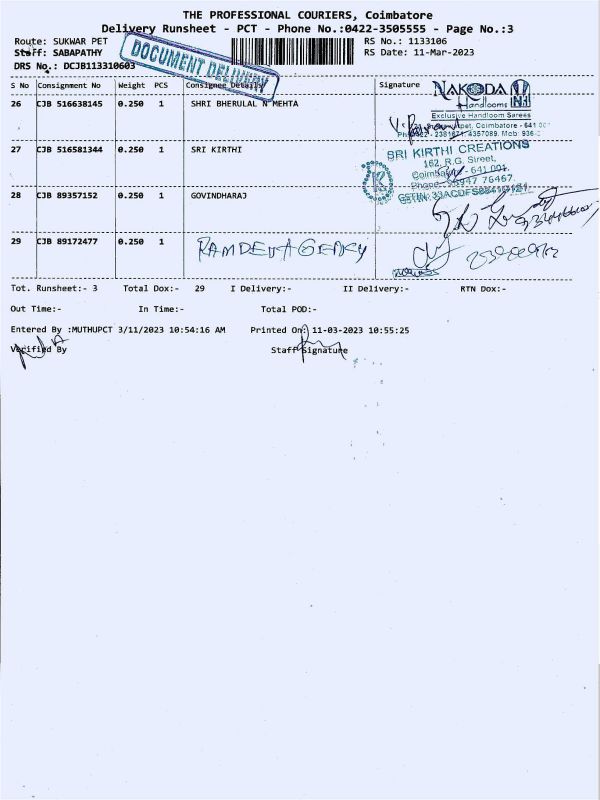 THE PROFESSIONAL COURIERS, Coimbatore
Delivery Runsheet - PCT - Phone No.:0422-3505555 - Page No.:3
Route: SUKWAR PET
RS No.: 1133106
Staff: SABAPATHY
RS Date: 11-Mar-2023
DRS No.: DCJB113310603
DOCUMENT DELIVERY
S No Consignment No Weight PCS Consignee Details Signature
26 CJB 516638145 0.250 1 SHRI BHERULAL N MEHTA
NAKODA
Handlooms
Exclusive Handloom Sarees
Coimbatore - 641 001
27 CJB 516581344 0.250 1 SRI KIRTHI
SRI KIRTHI CREATIONS
162, R.G. Street,
Coimbatore - 641 001.
28 CJB 89357152 0.250 1 GOVINDHARAJ
29 CJB 89172477 0.250 1 RAMDEV AGENCY
Tot. Runsheet:- 3 Total Dox:- 29 I Delivery:- II Delivery:- RTN Dox:-
Out Time:- In Time:- Total POD:-
Entered By :MUTHUPCT 3/11/2023 10:54:16 AM Printed On: 11-03-2023 10:55:25
Verified By Staff Signature